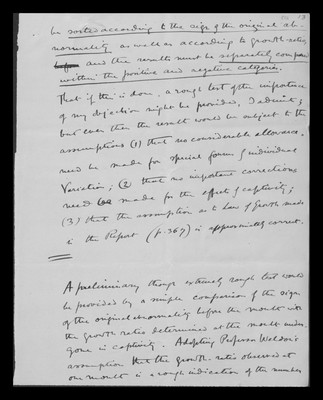 13
be sorted according to the sign of the original ab-
normality as well as according to growth ratio,
and the results must be separately compared
within the positive and negative categories.
That if this is done, a rough test of the importance
of my objection might be provided, I admit;
but even then the result would be subject to the
assumptions (1) that no considerable allowance
need be made for special forms of individual
Variation; (2) that no important corrections
need be made for the effect of captivity;
(3) that the assumption as to Law of Growth made
in the Report (p. 367) is approximately correct.
A preliminary though extremely rough test would
be provided by a simple comparison of the signs
of the original abnormality before the moult with
the growth ratios determined at the moult under-
gone in captivity. Adopting Professor Weldon's
assumption that the growth-ratio observed at
one moult is a rough indication of the number